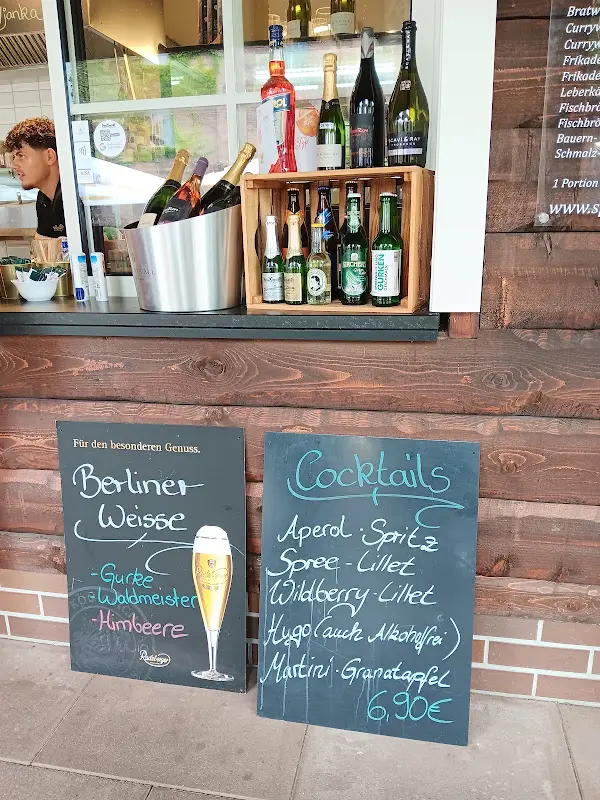 janka
Bratw
Curryw
Curryw
Frikade
Frikade
Leberkä
Fischbrö
Fischbrö
Bauern-
Schmalz-
1 Portion
www.sp
GURKEN
Für den besonderen Genuss.
Berliner
Weisse
-Gurke
-Waldmeister
-Himbeere
Radeberger
Cocktails
Aperol-Spritz
Spree-Lillet
Wildberry-Lillet
Hugo (auch Alkoholfrei)
Martini-Granatapfel
6,90€